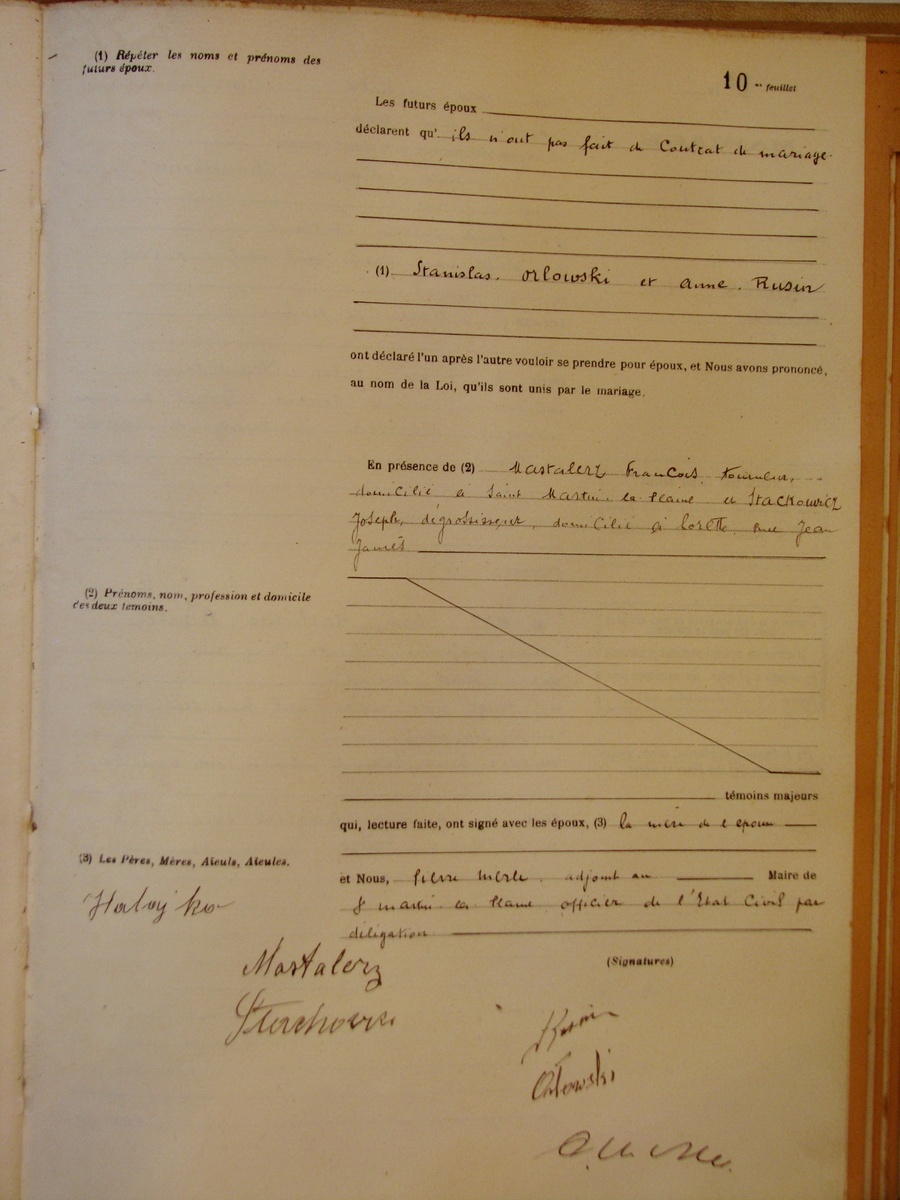 (1) Répéter les noms et prénoms des
futurs époux.
10 me feuillet
Les futurs époux
déclarent qu'ils n'ont pas fait de Contrat de mariage.
(1) Stanislas. Orlowski et Anne. Rusin
ont déclaré l'un après l'autre vouloir se prendre pour époux, et Nous avons prononcé,
au nom de la Loi, qu'ils sont unis par le mariage.
En présence de (2) Mastalerz François, tourneur,
domicilié à Saint Martin la Plaine et Stackowicz
Joseph, dégrossisseur, domicilié à Lorette, rue Jean
Jaurès
(2) Prénoms, nom, profession et domicile
des deux témoins.
témoins majeurs
qui, lecture faite, ont signé avec les époux, (3) la mère de l'époux
(3) Les Pères, Mères, Aïeuls, Aïeules.
et Nous, Pierre Merle. adjoint au Maire de
St Martin la Plaine officier de l'Etat Civil par
délégation
Mastalerz
(Signatures)
Rusin
Orlowski